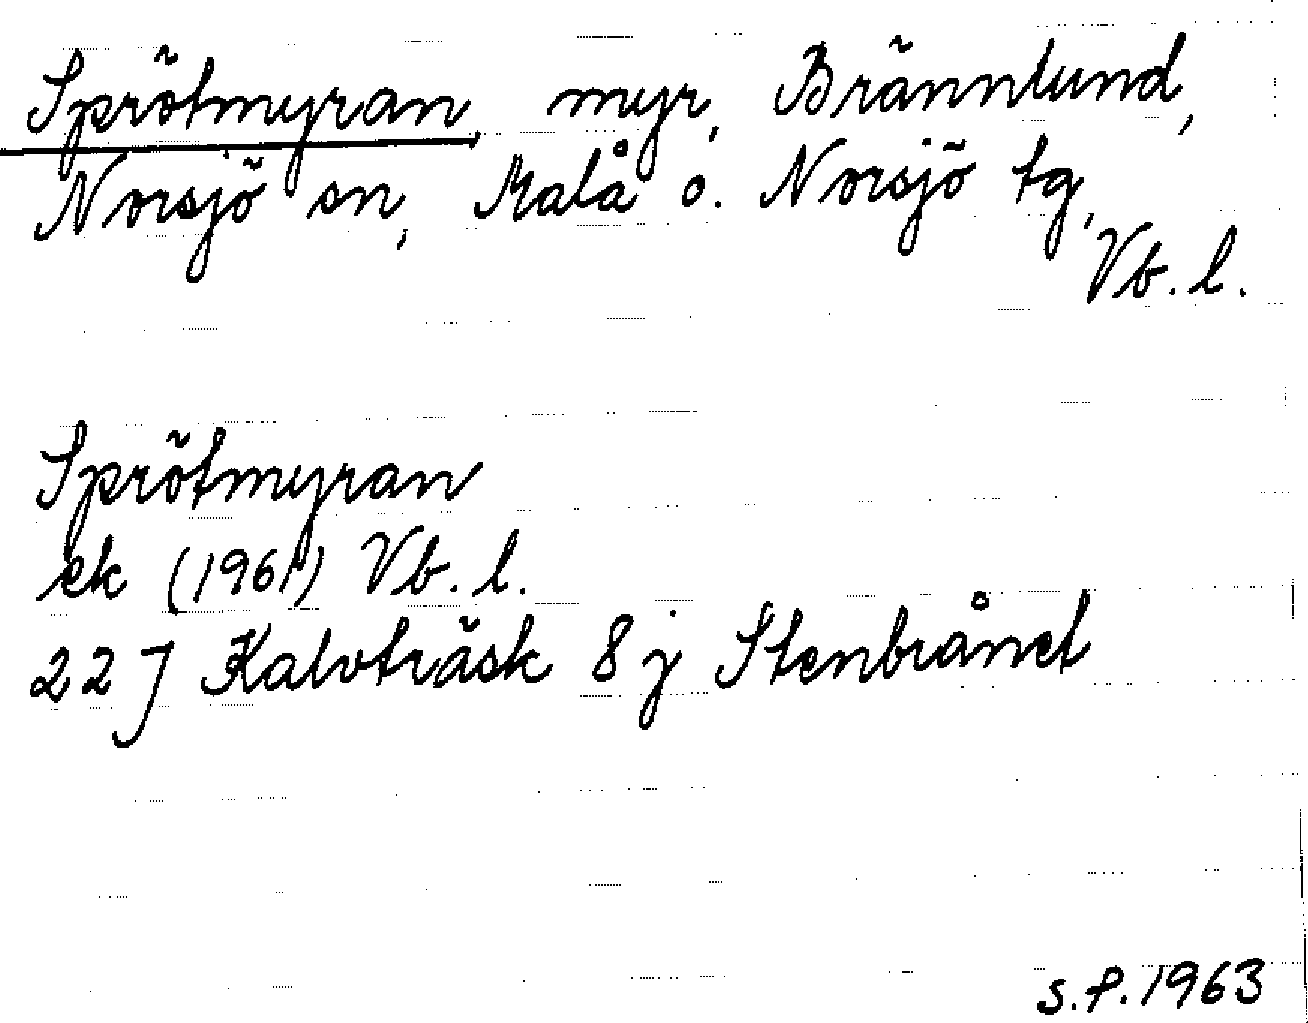 Sprötmyran, myr, Brännlund,
Norsjö sn, Malå o. Norsjö tg,
Vb. l.
Sprötmyran
ek (1961) Vb. l.
22 J Kalvträsk 8 j Stenbrånet
s.f. 1963